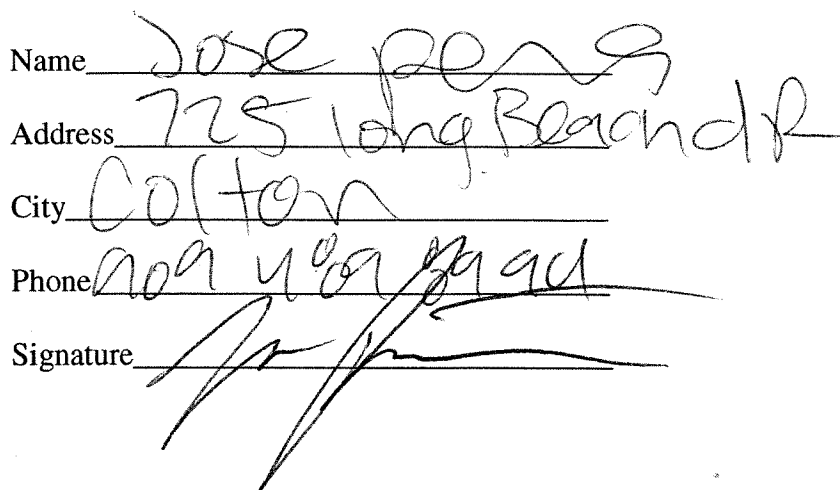 Name Jose pena
Address 725 long Beach dr
City Colton
Phone 909
Signature